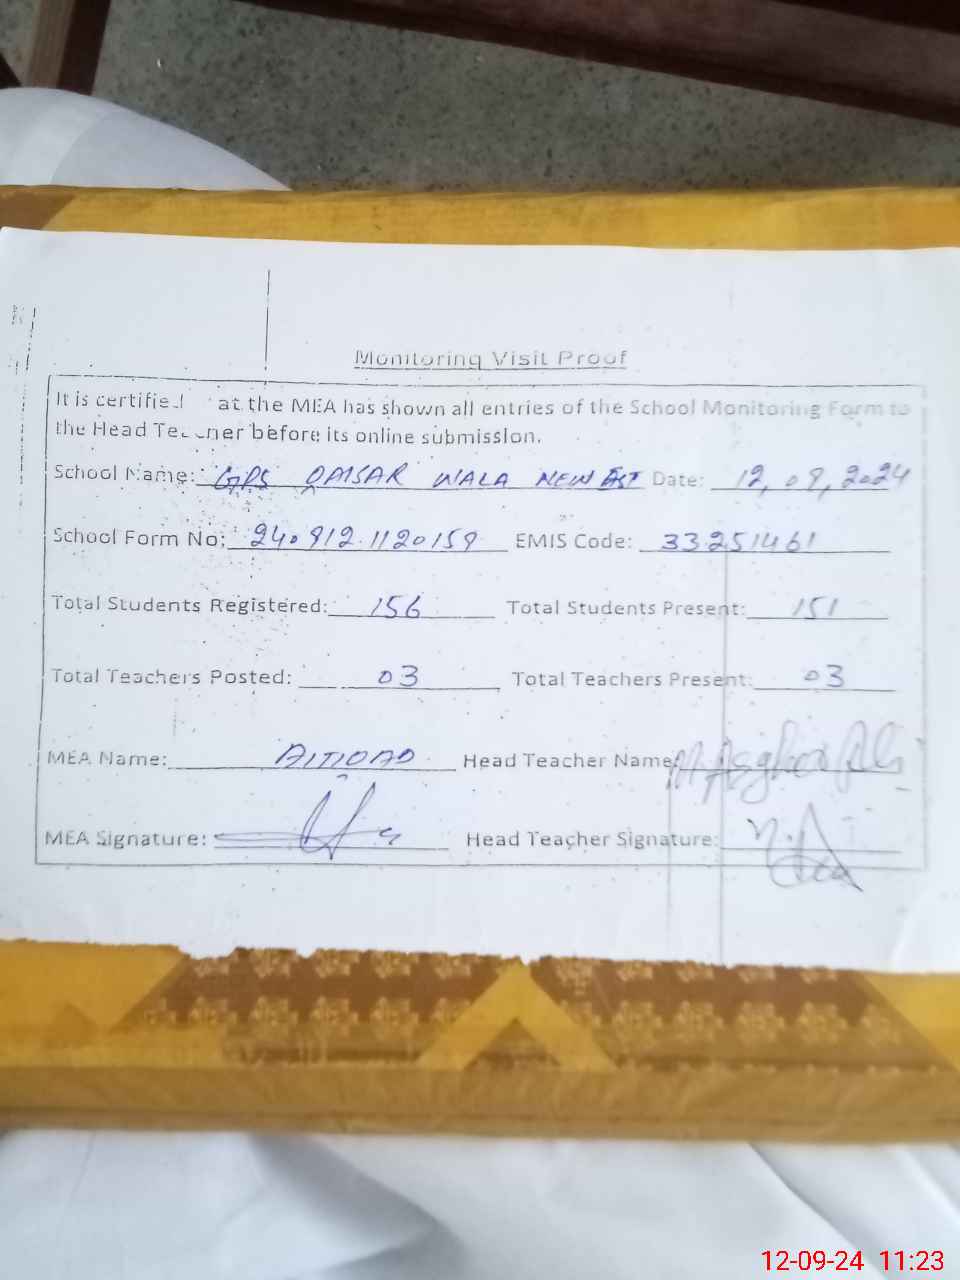 Monitoring Visit Proof
It is certified at the MEA has shown all entries of the School Monitoring Form to
the Head Teacher before its online submission.
School Name: GPS QAISAR WALA NEW Date: 12, 09, 2024
School Form No: 240912.1120159 EMIS Code: 33251461
Total Students Registered: 156 Total Students Present: 151
Total Teachers Posted: 03 Total Teachers Present: 03
MEA Name: Head Teacher Name: M Asghar Ali
MEA Signature: Head Teacher Signature:
12-09-24 11:23